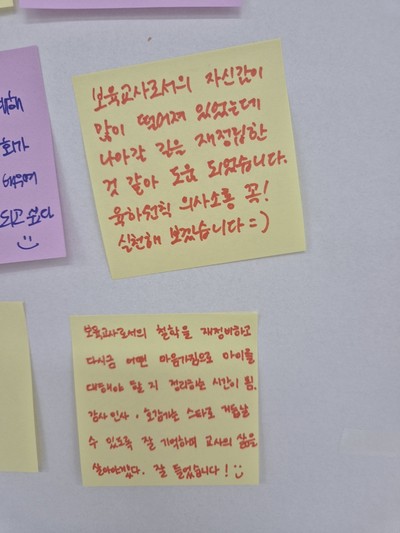 대해
화가
배우며
되고 싶다
보육교사로서의 자신감이
많이 떨어져 있었는데
나아갈 길을 재정립한
것 같아 도움 되었습니다.
육하원칙 의사소통 꼭!
실천해 보겠습니다 =)
보육교사로서의 철학을 재정비하고
다시금 어떤 마음가짐으로 아이를
대해야 할 지 정리하는 시간이 됨.
감사인사, 공감하는 스타로 거듭날
수 있도록 잘 기억하며 교사의 삶을
살아가겠다. 잘 들었습니다!